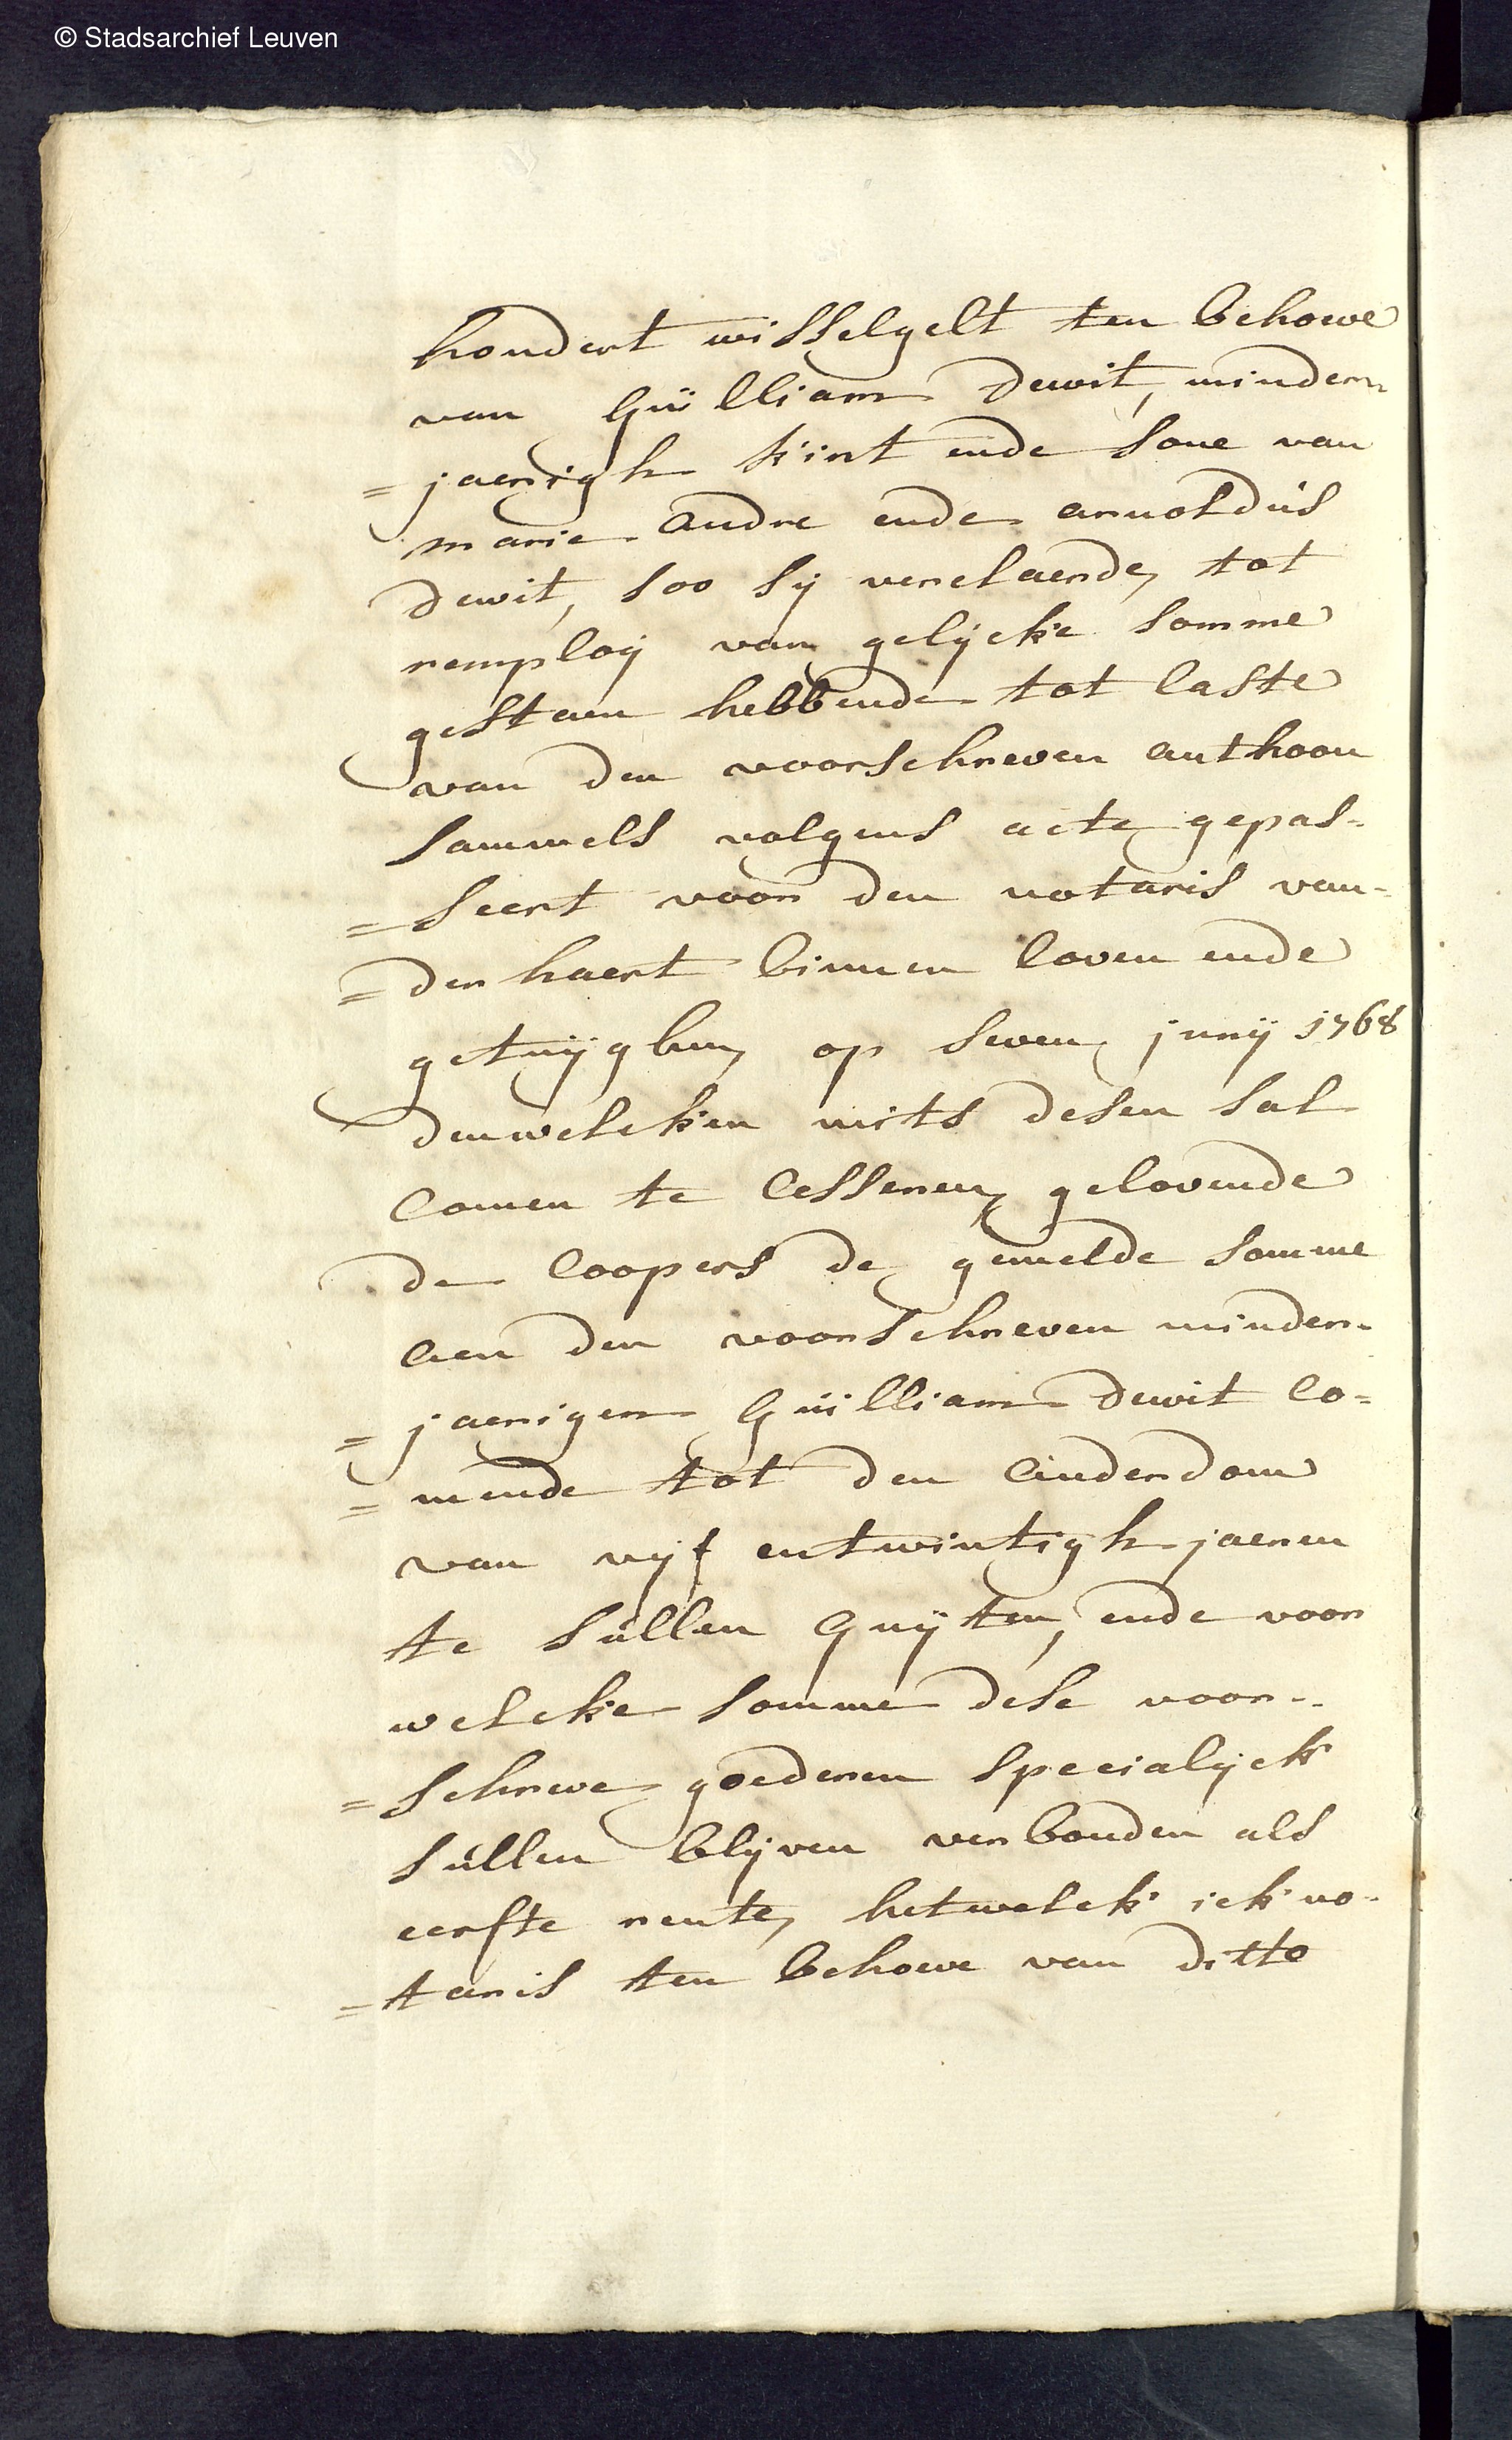 © Stadsarchief Leuven
hondert wisselgelt ten behoeve
van Guilliam Dewit, minder-
=jaerigh kint ende sone van
marie andre ende arnoldus
dewit, soo sij verclaerde, tot
remploij van gelijcke somme
gestaen hebbende tot laste
van den voorschreven anthoon
sammels volgens acte gepas-
=seert voor den notaris van-
=der haert binnen loven ende
getuijghen op seven junij 1768
denwelcken mits desen sal
comen te cesseren, gelovende
de coopers de gemelde somme
aen den voorschreven minder-
=jaerigen Guilliam dewit co=
=mende tot den auderdom
van vijf entwintigh jaeren
te sullen quijten, ende voor
welcke somme dese voor-
=schreve goederen specialijck
sullen blijven verbonden als
eerste rente, hetwelck ick no-
=taris ten behoeve van ditto